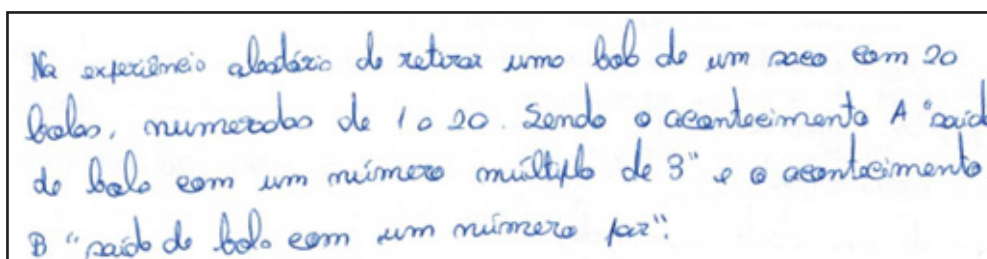 Na experiência aleatória de retirar uma bola de um saco com 20
bolas, numeradas de 1 a 20. Sendo o acontecimento A "saída
de bola com um número múltiplo de 3" e o acontecimento
B "saída de bola com um número par".